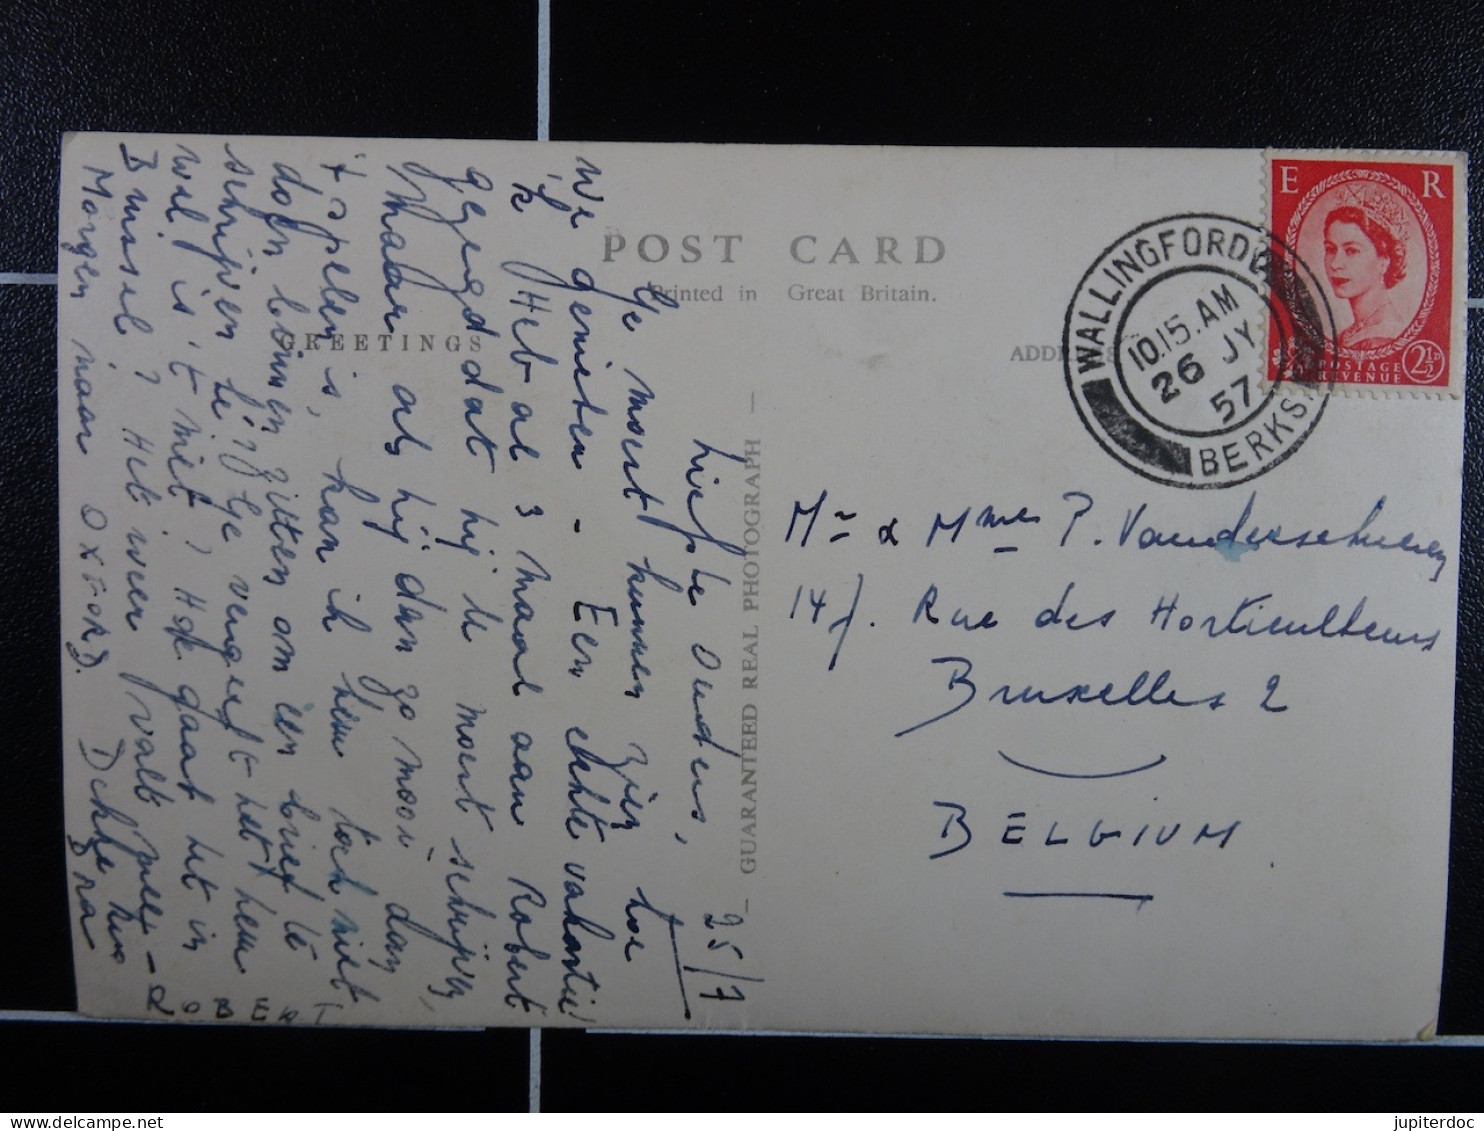 POST CARD
Printed in Great Britain.
GREETINGS
ADDRESS
— GUARANTEED REAL PHOTOGRAPH —
E R
POSTAGE REVENUE
2½D
WALLINGFORD
10.15 AM
26 JY
57
BERKS.
Mr & Mme P. Vanderschueren
14 Rue des Horticulteurs
Bruxelles 2
BELGIUM
25/7
Liefste Ouders,
Ge moest kunnen zien hoe
we genieten - Een echte vakantie!
'k Heb al 3 maal aan Robert
gezegd dat hij te moest schrijven,
Maar als hij dan zo mooi dan
't spelen is, kan ik hem toch niet
doen binnen zitten om een brief te
schrijven hé? Ge vergeeft het hem
wel is 't niet? Hoe gaat het in
Brussel? Het weer valt mee -
Morgen naar OXFORD. Dikke kus
ROBERT